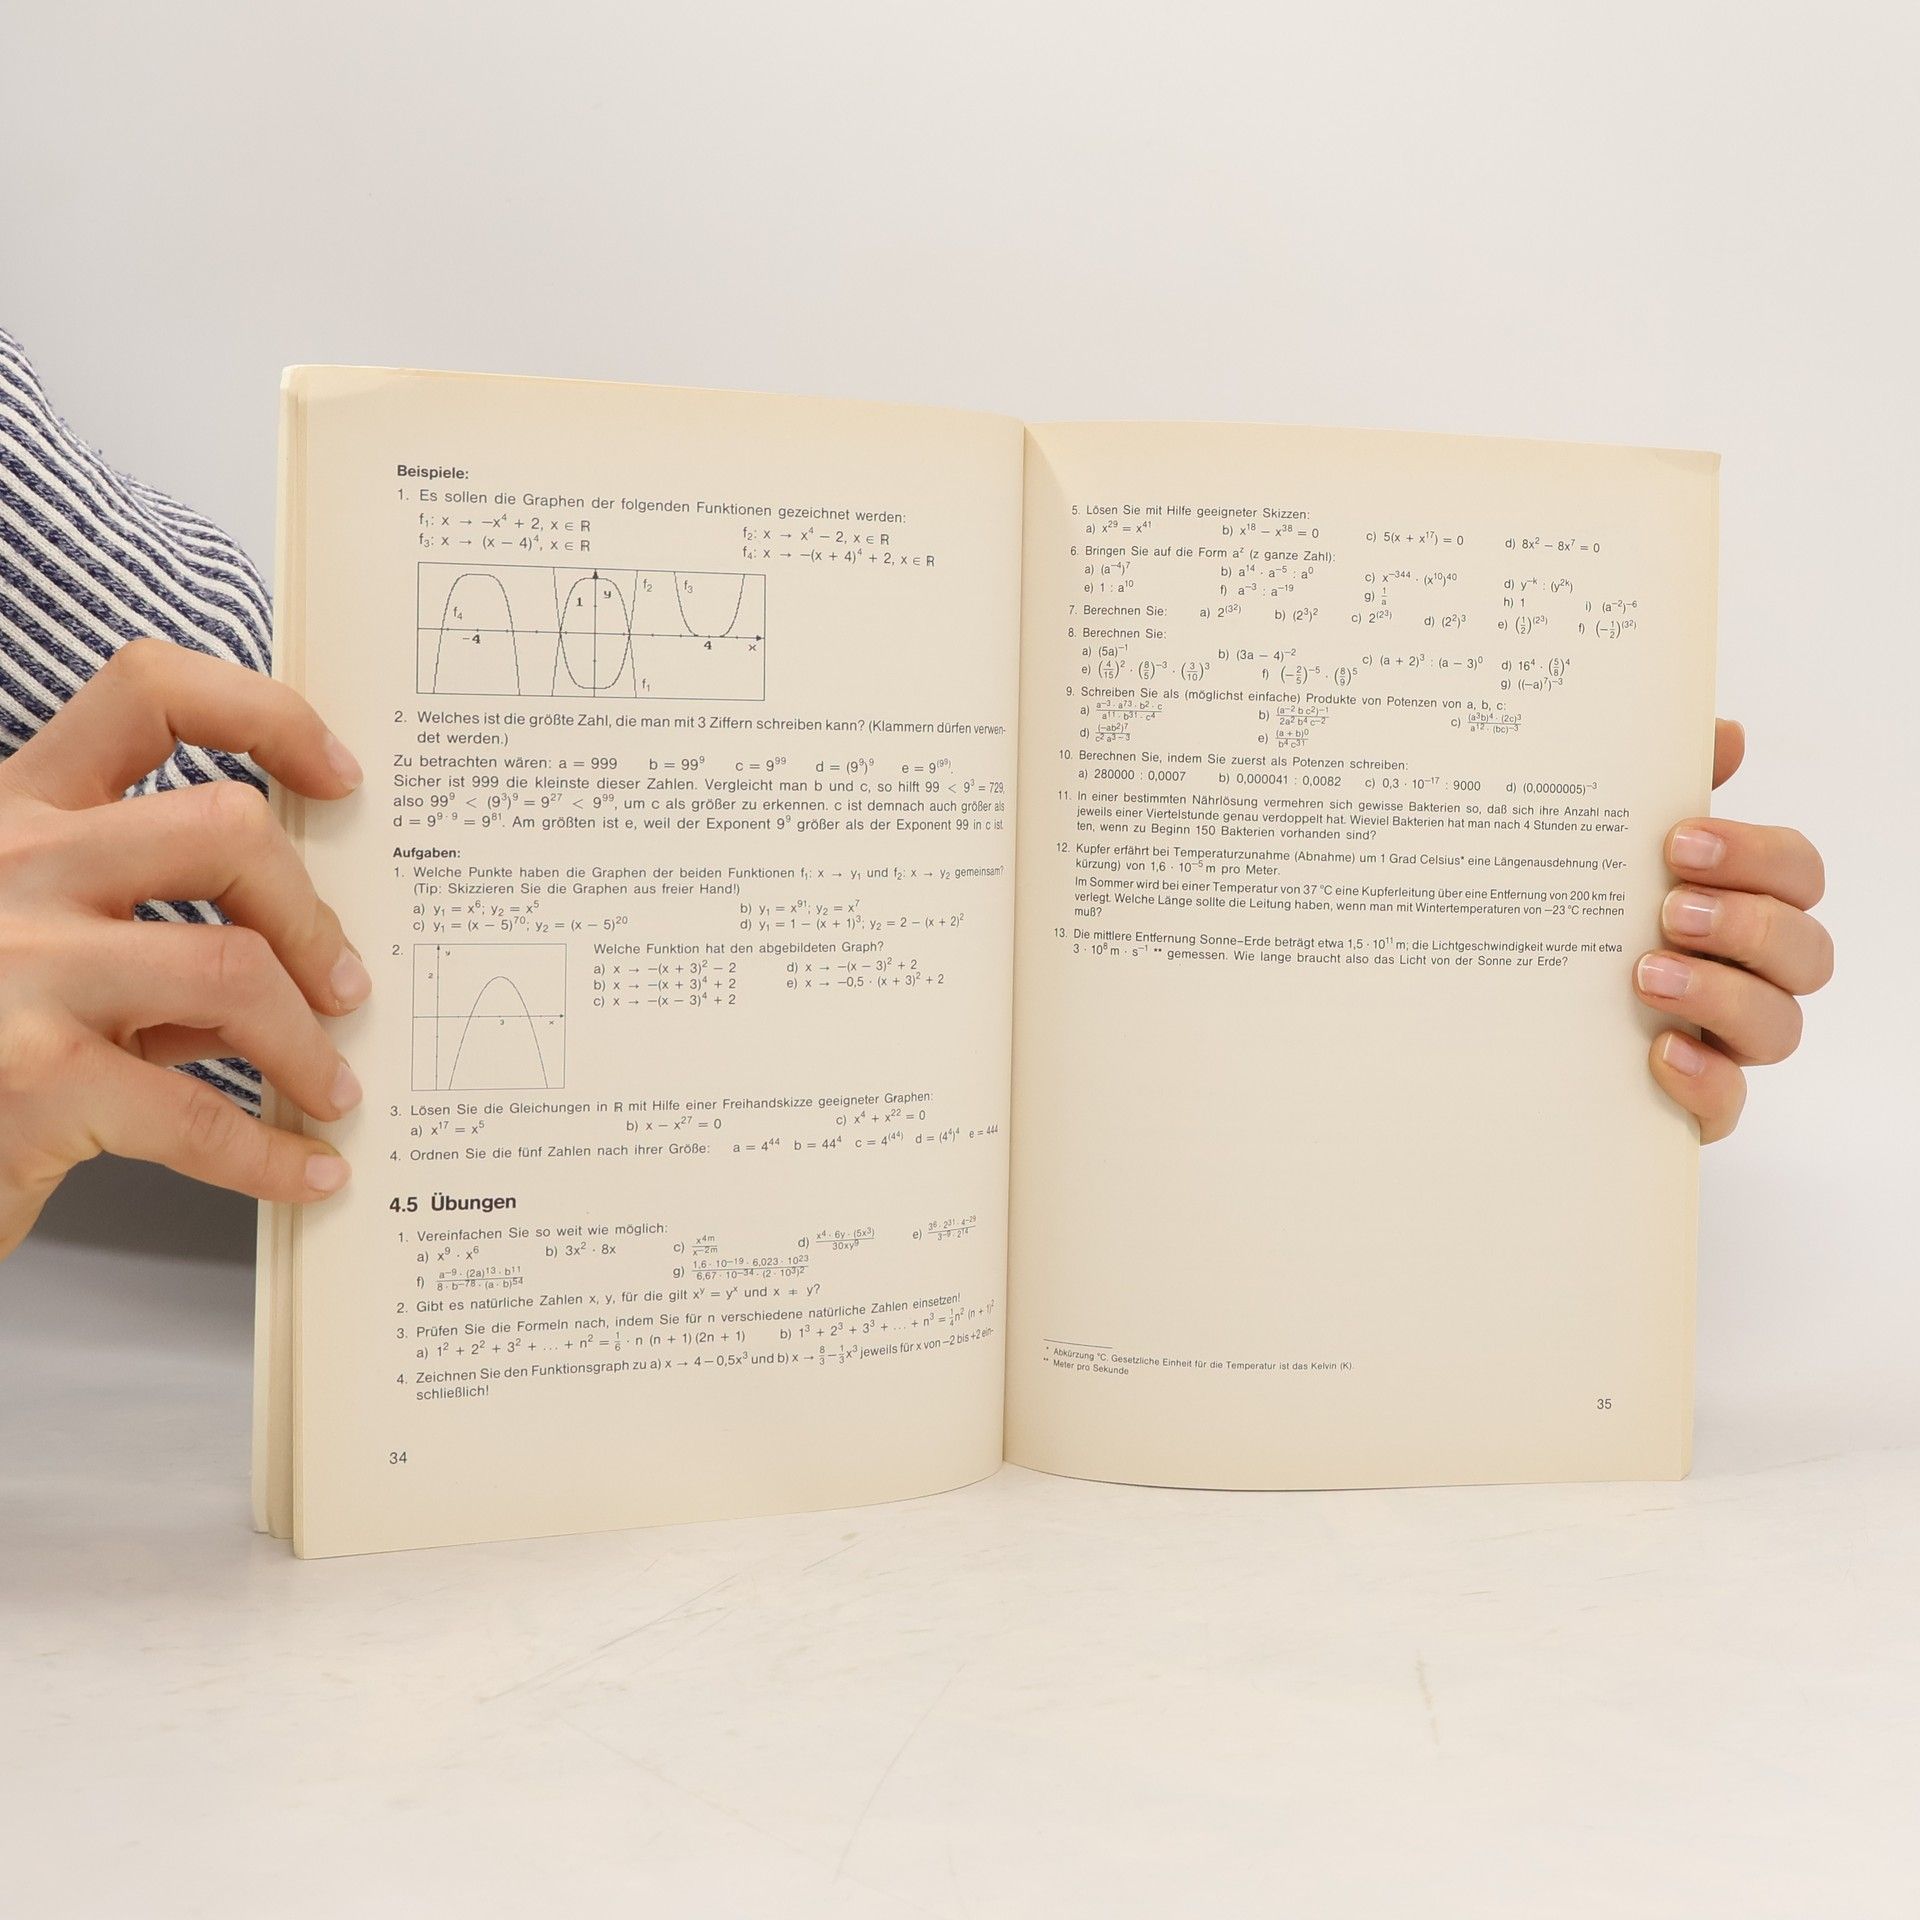 Beispiele:
1. Es sollen die Graphen der folgenden Funktionen gezeichnet werden:
f₁: x → −x⁴ + 2, x ∈ ℝ f₂: x → x⁴ − 2, x ∈ ℝ
f₃: x → (x − 4)⁴, x ∈ ℝ f₄: x → −(x + 4)⁴ + 2, x ∈ ℝ
f₄ −4 1 y f₂ f₃ 4 x f₁
2. Welches ist die größte Zahl, die man mit 3 Ziffern schreiben kann? (Klammern dürfen verwen-
det werden.)
Zu betrachten wären: a = 999 b = 99⁹ c = 9⁹⁹ d = (9⁹)⁹ e = 9^(9⁹).
Sicher ist 999 die kleinste dieser Zahlen. Vergleicht man b und c, so hilft 99 < 9³ = 729,
also 99⁹ < (9³)⁹ = 9²⁷ < 9⁹⁹, um c als größer zu erkennen. c ist demnach auch größer als
d = 9^(9 · 9) = 9⁸¹. Am größten ist e, weil der Exponent 9⁹ größer als der Exponent 99 in c ist.
Aufgaben:
1. Welche Punkte haben die Graphen der beiden Funktionen f₁: x → y₁ und f₂: x → y₂ gemeinsam?
(Tip: Skizzieren Sie die Graphen aus freier Hand!)
a) y₁ = x⁶; y₂ = x⁵ b) y₁ = x⁹¹; y₂ = x⁷
c) y₁ = (x − 5)⁷⁰; y₂ = (x − 5)²⁰ d) y₁ = 1 − (x + 1)³; y₂ = 2 − (x + 2)²
2. Welche Funktion hat den abgebildeten Graph?
y 2 3 x
a) x → −(x + 3)² − 2 d) x → −(x − 3)² + 2
b) x → −(x + 3)⁴ + 2 e) x → −0,5 · (x + 3)² + 2
c) x → −(x − 3)⁴ + 2
3. Lösen Sie die Gleichungen in ℝ mit Hilfe einer Freihandskizze geeigneter Graphen:
a) x¹⁷ = x⁵ b) x − x²⁷ = 0 c) x⁴ + x²² = 0
4. Ordnen Sie die fünf Zahlen nach ihrer Größe: a = 4⁴⁴ b = 44⁴ c = 4^(4⁴) d = (4⁴)⁴ e = 444
4.5 Übungen
1. Vereinfachen Sie so weit wie möglich:
a) x⁹ · x⁶ b) 3x² · 8x c) x^(4m) / x^(−2m) d) x⁴ · 6y · (5x³) / 30xy⁹ e) 3⁶ · 2³¹ · 4⁻²⁹ / 3⁻⁹ · 2¹⁴
f) a⁻⁹ · (2a)¹³ · b¹¹ / 8 · b⁻⁷⁸ · (a · b)⁵⁴ g) 1,6 · 10⁻¹⁹ · 6,023 · 10²³ / 6,67 · 10⁻³⁴ · (2 · 10³)²
2. Gibt es natürliche Zahlen x, y, für die gilt x^y = y^x und x ≠ y?
3. Prüfen Sie die Formeln nach, indem Sie für n verschiedene natürliche Zahlen einsetzen!
a) 1² + 2² + 3² + ... + n² = 1/6 · n (n + 1) (2n + 1) b) 1³ + 2³ + 3³ + ... + n³ = 1/4 n² (n + 1)²
4. Zeichnen Sie den Funktionsgraph zu a) x → 4 − 0,5x³ und b) x → 8/3 − 1/3 x³ jeweils für x von −2 bis +2 ein-
schließlich!
34
5. Lösen Sie mit Hilfe geeigneter Skizzen:
a) x²⁹ = x⁴¹ b) x¹⁸ − x³⁸ = 0 c) 5(x + x¹⁷) = 0 d) 8x² − 8x⁷ = 0
6. Bringen Sie auf die Form a^z (z ganze Zahl):
a) (a⁻⁴)⁷ b) a¹⁴ · a⁻⁵ : a⁰ c) x⁻³⁴⁴ · (x¹⁰)⁴⁰ d) y^(−k) : (y^(2k))
e) 1 : a¹⁰ f) a⁻³ : a⁻¹⁹ g) 1/a h) 1 i) (a⁻²)⁻⁶
7. Berechnen Sie: a) 2^(3²) b) (2³)² c) 2^(2³) d) (2²)³ e) (1/2)^(2³) f) (−1/2)^(3²)
8. Berechnen Sie:
a) (5a)⁻¹ b) (3a − 4)⁻² c) (a + 2)³ : (a − 3)⁰ d) 16⁴ · (5/8)⁴
e) (4/15)² · (8/5)⁻³ · (3/10)³ f) (−2/5)⁻⁵ · (8/9)⁵ g) ((−a)⁷)⁻³
9. Schreiben Sie als (möglichst einfache) Produkte von Potenzen von a, b, c:
a) a⁻³ · a⁷³ · b² · c / a¹¹ · b³¹ · c⁴ b) (a⁻² b c²)⁻¹ / 2a² b⁴ c⁻² c) (a³b)⁴ · (2c)³ / a¹² · (bc)⁻³
d) (−ab²)⁷ / c² a³⁻³ e) (a + b)⁰ / b⁴ c³¹
10. Berechnen Sie, indem Sie zuerst als Potenzen schreiben:
a) 280000 : 0,0007 b) 0,000041 : 0,0082 c) 0,3 · 10⁻¹⁷ : 9000 d) (0,0000005)⁻³
11. In einer bestimmten Nährlösung vermehren sich gewisse Bakterien so, daß sich ihre Anzahl nach
jeweils einer Viertelstunde genau verdoppelt hat. Wieviel Bakterien hat man nach 4 Stunden zu erwar-
ten, wenn zu Beginn 150 Bakterien vorhanden sind?
12. Kupfer erfährt bei Temperaturzunahme (Abnahme) um 1 Grad Celsius* eine Längenausdehnung (Ver-
kürzung) von 1,6 · 10⁻⁵ m pro Meter.
Im Sommer wird bei einer Temperatur von 37 °C eine Kupferleitung über eine Entfernung von 200 km frei
verlegt. Welche Länge sollte die Leitung haben, wenn man mit Wintertemperaturen von −23 °C rechnen
muß?
13. Die mittlere Entfernung Sonne–Erde beträgt etwa 1,5 · 10¹¹ m; die Lichtgeschwindigkeit wurde mit etwa
3 · 10⁸ m · s⁻¹ ** gemessen. Wie lange braucht also das Licht von der Sonne zur Erde?
* Abkürzung °C. Gesetzliche Einheit für die Temperatur ist das Kelvin (K).
** Meter pro Sekunde
35